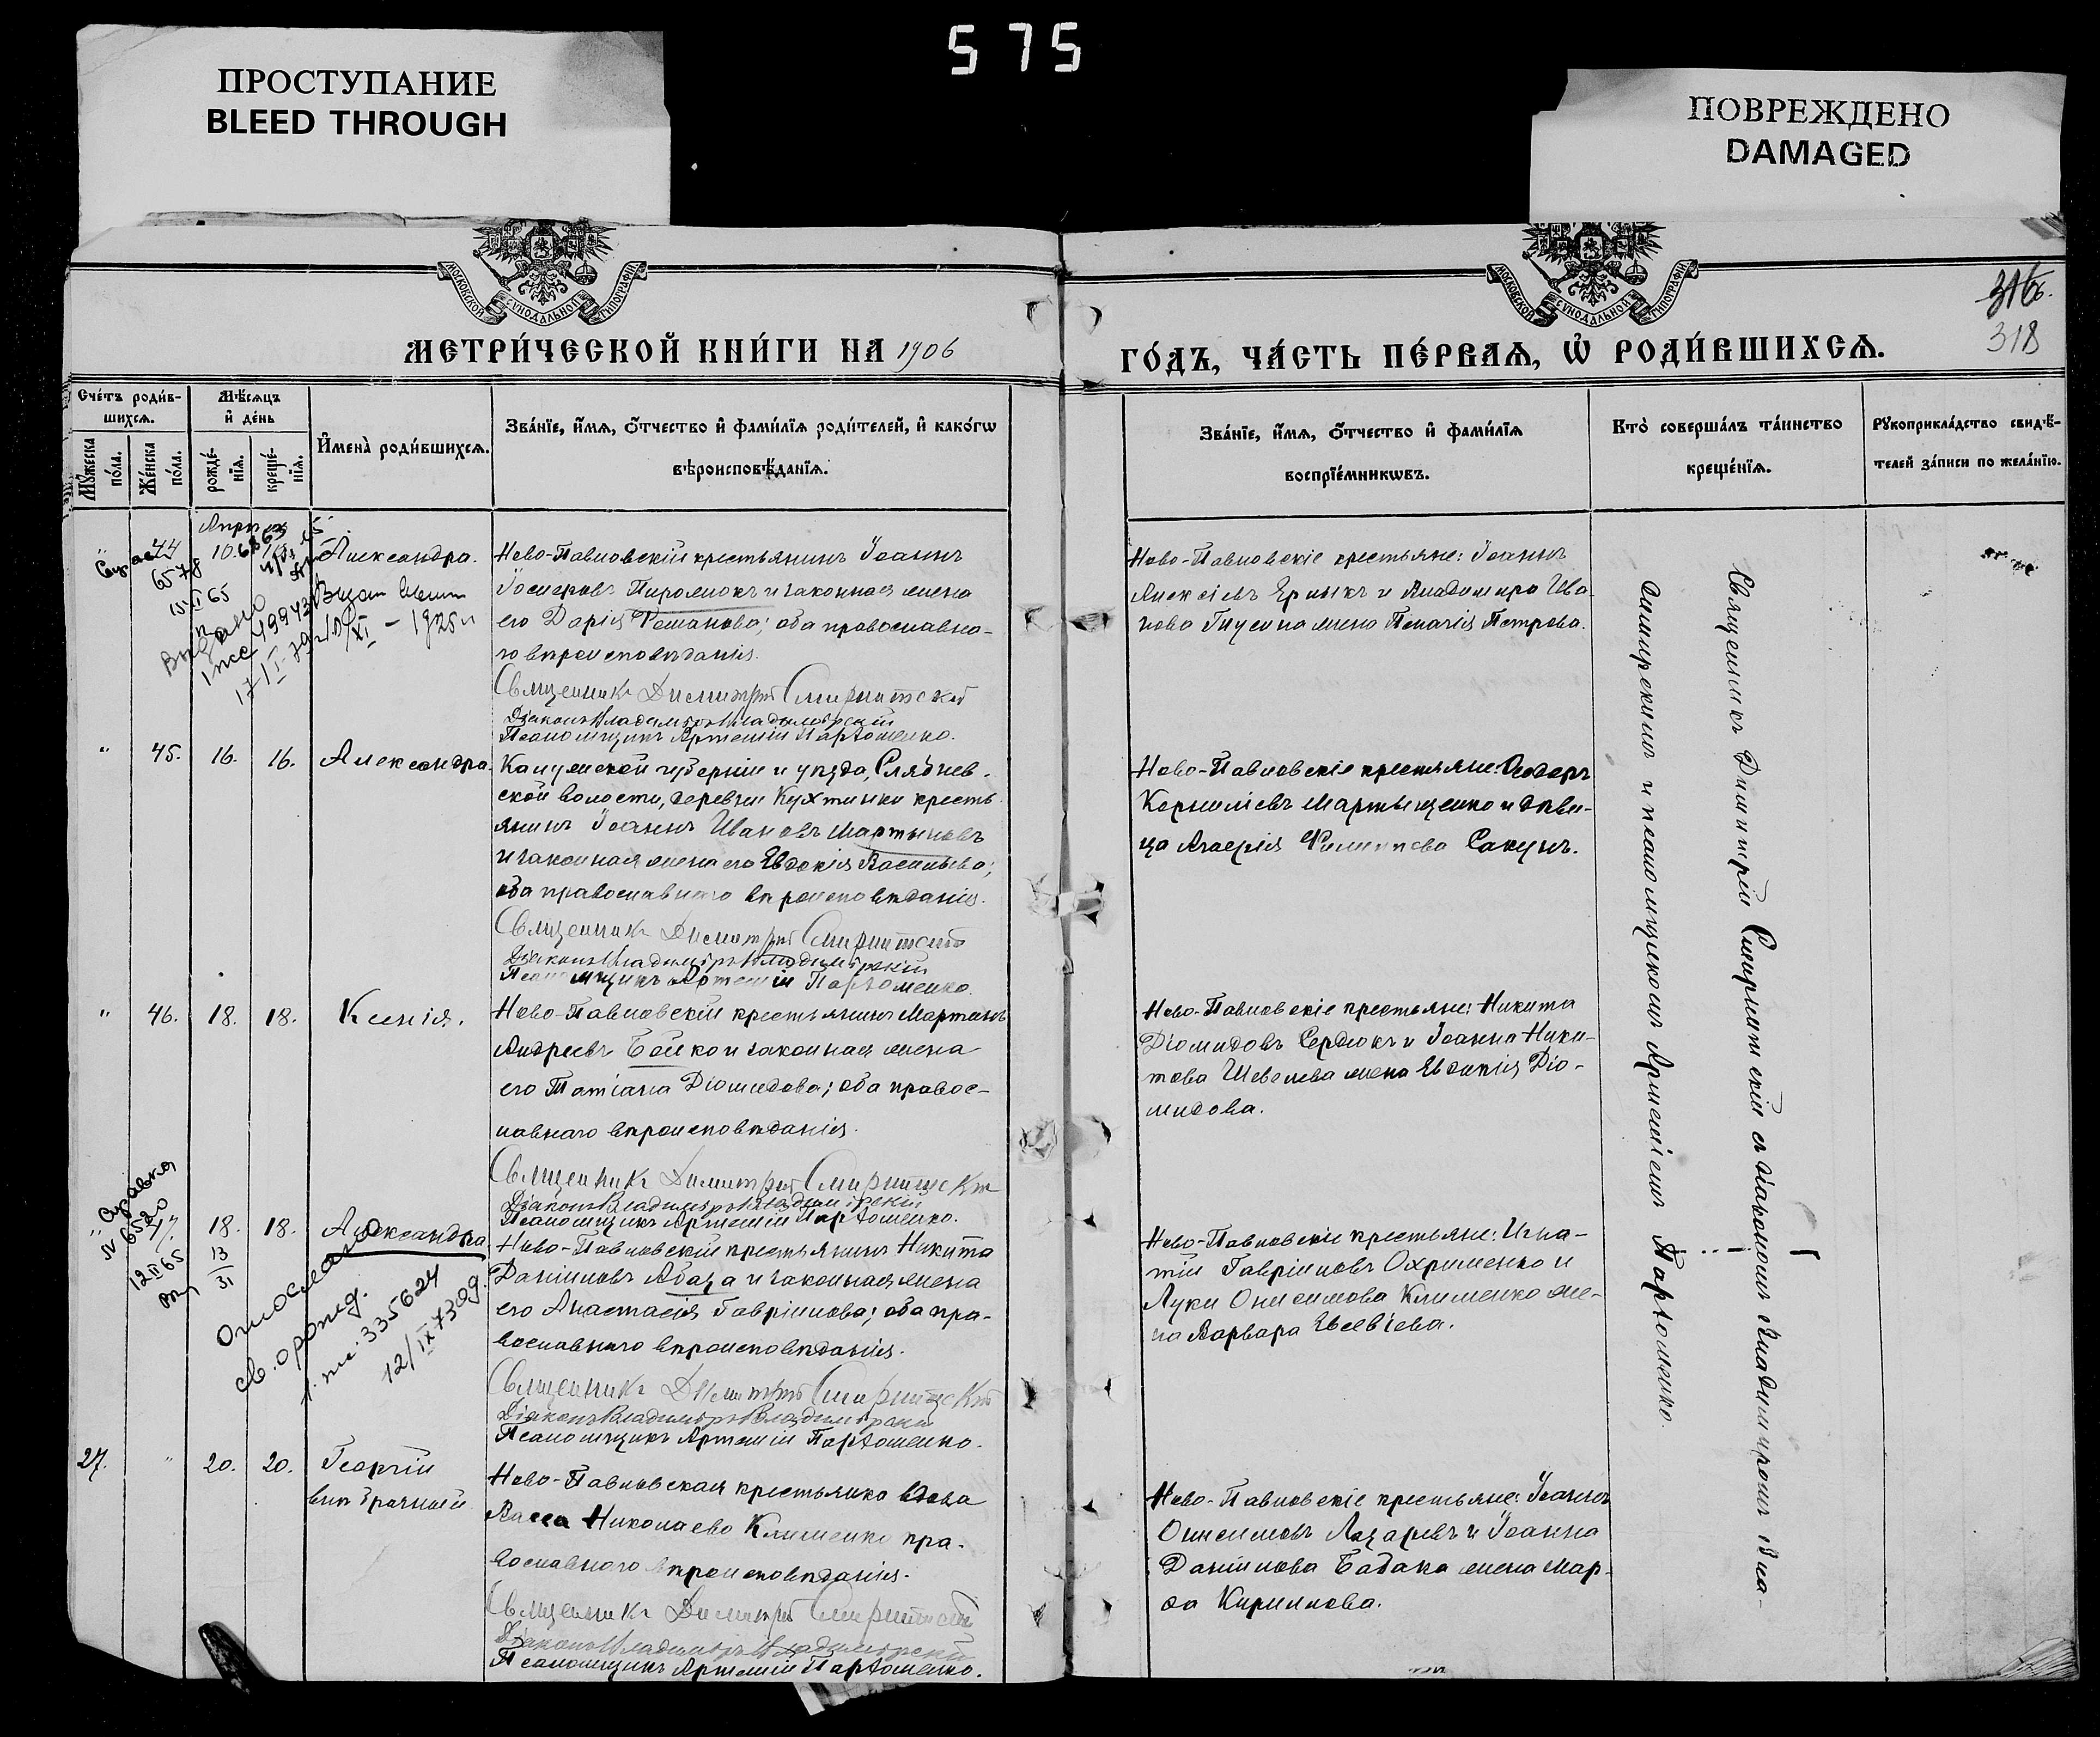 575
ПРОСТУПАНИЕ
BLEED THROUGH
ПОВРЕЖДЕНО
DAMAGED
МОСКОВСКОЙ СѴНОДАЛЬНОЙ ТИПОГРАФІИ
МОСКОВСКОЙ СѴНОДАЛЬНОЙ ТИПОГРАФІИ
318
МЕТРИ́ЧЕСКОЙ КНИ́ГИ НА 1906
ГО́ДЪ, ЧА́СТЬ ПЕ́РВАѦ, Ѽ РОДИ́ВШИХСѦ.
Сче́тъ роди́в-
шихсѧ.
Мꙋ́жеска
по́ла.
Же́нска
по́ла.
Мѣ́сѧцъ
и҆ де́нь
рожде́-
нїѧ.
креще́-
нїѧ.
И҆мена̀ роди́вшихсѧ.
Зва́нїе, и҆́мѧ, ѻ҆́тчество и҆ фами́лїѧ роди́телей, и҆ како́гѡ
вѣроисповѣ́данїѧ.
Зва́нїе, и҆́мѧ, ѻ҆́тчество и҆ фами́лїѧ
воспрїе́мникѡвъ.
Кто̀ соверша́лъ та́инство
креще́нїѧ.
Рꙋкоприкла́дство свидѣ́-
телей за́писи по жела́нїю.
44
10.
Александра.
6578
Выдано
1925 г
Ново-Павловскій крестьянинъ Іоаннъ
Пиролюкъ и законная жена
его Дарія; оба православна-
го вѣроисповѣданія.
Священникъ Димитрій
Діаконъ Владиміръ Владимірскій
Псаломщикъ Артемій Парѳоменко.
Ново-Павловскіе крестьяне: Іоаннъ
Алексіевъ и Владиміра Ива-
нова жена Пелагія Петрова.
" 45. 16. 16. Александра.
Калужской губерніи и уѣзда,
ской волости, деревни Кухтинки кресть-
янинъ Іоаннъ Ивановъ Мартыновъ
и законная жена его Евдокія Васильева;
оба православнаго вѣроисповѣданія.
Священникъ Димитрій
Діаконъ Владиміръ Владимірскій
Псаломщикъ Артемій Парѳоменко.
Ново-Павловскіе крестьяне: Ѳеодоръ
Корниліевъ Мартыщенко и дѣви-
ца Филиппова Сакунъ.
" 46. 18. 18. Ксенія.
Ново-Павловскій крестьянинъ Мартинъ
Андреевъ Бойко и законная жена
его Татіана Діомидова; оба правос-
лавнаго вѣроисповѣданія.
Священникъ Димитрій
Діаконъ Владиміръ Владимірскій
Псаломщикъ Артемій Парѳоменко.
Ново-Павловскіе крестьяне: Никита
Діомидовъ Сердюкъ и Іоанна Ники-
това Шевелева жена Діо-
мидова.
Справка
№ 6520
12 II 65
" 47. 18. 18. Александра
13
31
св. о рожд.
335624
12/IX 73
Ново-Павловскій крестьянинъ Никита
Даніиловъ Абаза и законная жена
его Анастасія Гавріилова; оба пра-
вославнаго вѣроисповѣданія.
Священникъ Димитрій
Діаконъ Владиміръ Владимірскій
Псаломщикъ Артемій Парѳоменко.
Ново-Павловскіе крестьяне: Игна-
тій Гавріиловъ Охрименко и
Луки Онисимова Клименко же-
на Варвара Евсевіева.
27. " 20. 20. Георгій
внѣбрачный
Ново-Павловская крестьянка вдова
Васса Николаева Клименко пра-
вославнаго вѣроисповѣданія.
Священникъ Димитрій
Діаконъ Владиміръ Владимірскій
Псаломщикъ Артемій Парѳоменко.
Ново-Павловскіе крестьяне: Іоаннъ
Онисимовъ Лазаревъ и Іоанна
Даніилова Бабака жена Мар-
ѳа Кириллова.
Священникъ Димитрій съ діакономъ Владиміромъ Вла-
димірскимъ и псаломщикомъ Артеміемъ Парѳоменко.